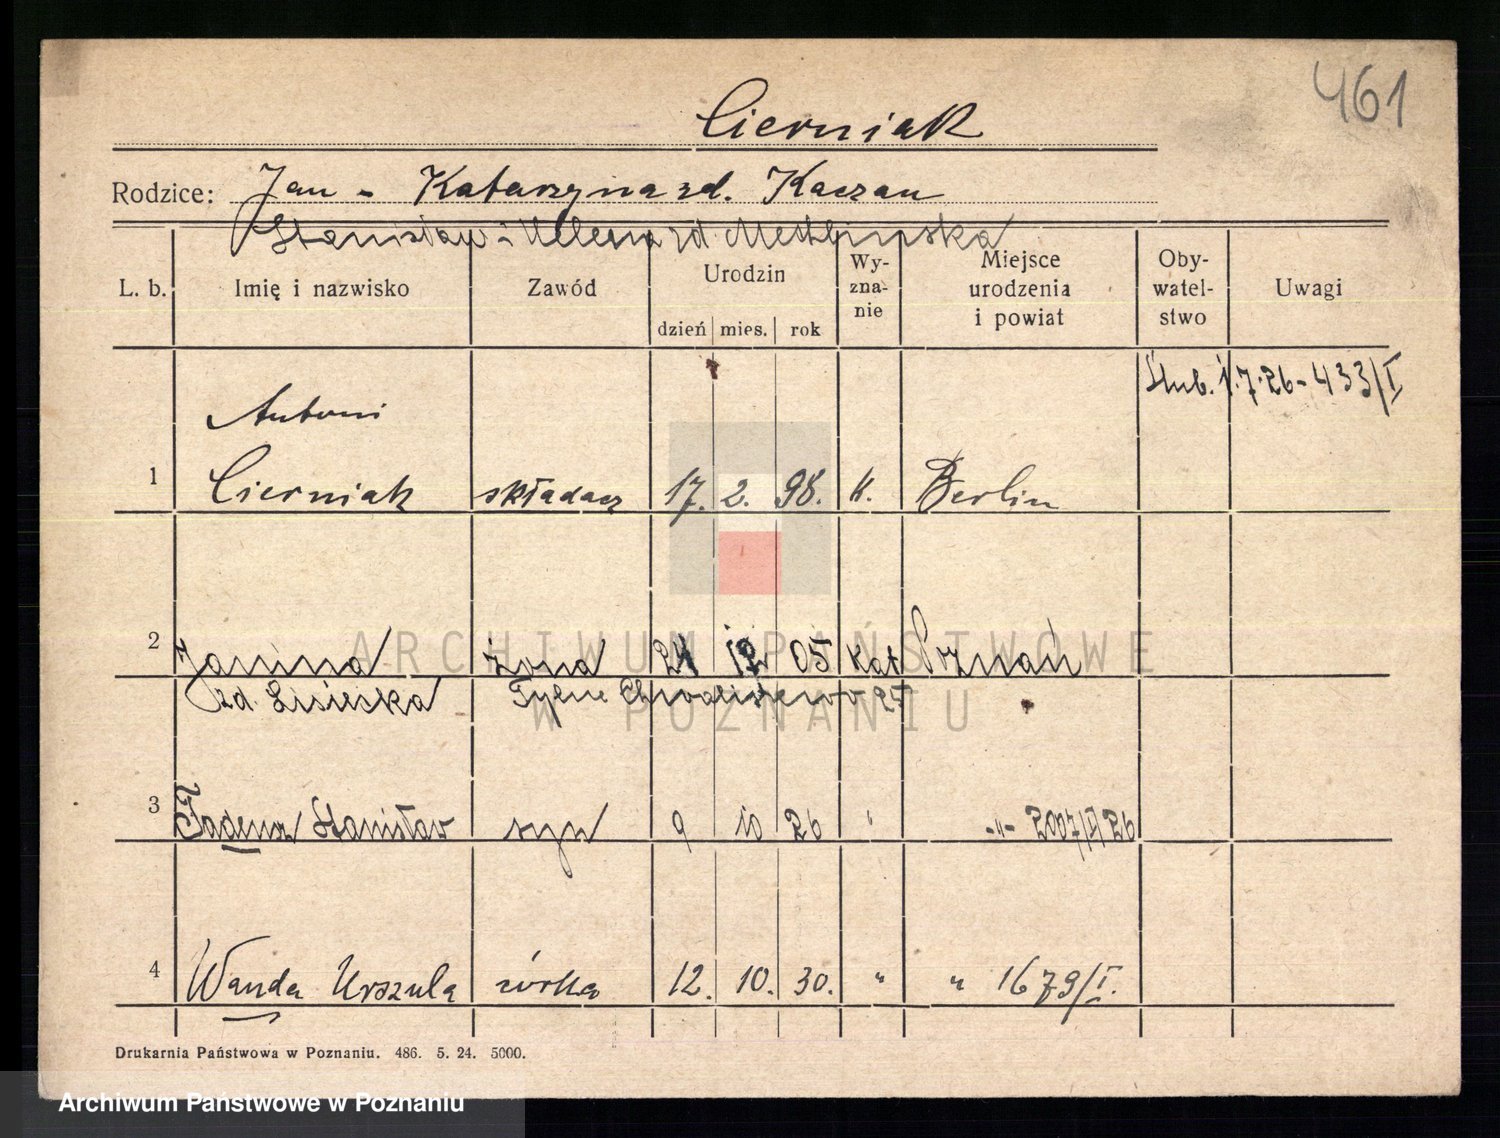 461
Cierniak
Rodzice: Jan - Katarzyna zd. Kaczan
Stanisław i Helena zd.
L. b. Imię i nazwisko Zawód Urodzin dzień mies. rok Wy-zna-nie Miejsce urodzenia i powiat Oby-watel-stwo Uwagi
Ślub. 1.7.26 - 433/I
Antoni
1 Cierniak składacz 17. 2. 98. K. Berlin
2 Janina żona 24 12 05 Kat Poznań
zd. Lisiecka Tylne Chwaliszewo 25
3 Tadeusz Stanisław syn 9 10 26 " -"- 2007/I/26
4 Wanda Urszula córka 12. 10. 30. " " 1679/I.
Drukarnia Państwowa w Poznaniu. 486. 5. 24. 5000.
ARCHIWUM PAŃSTWOWE
W POZNANIU
Archiwum Państwowe w Poznaniu